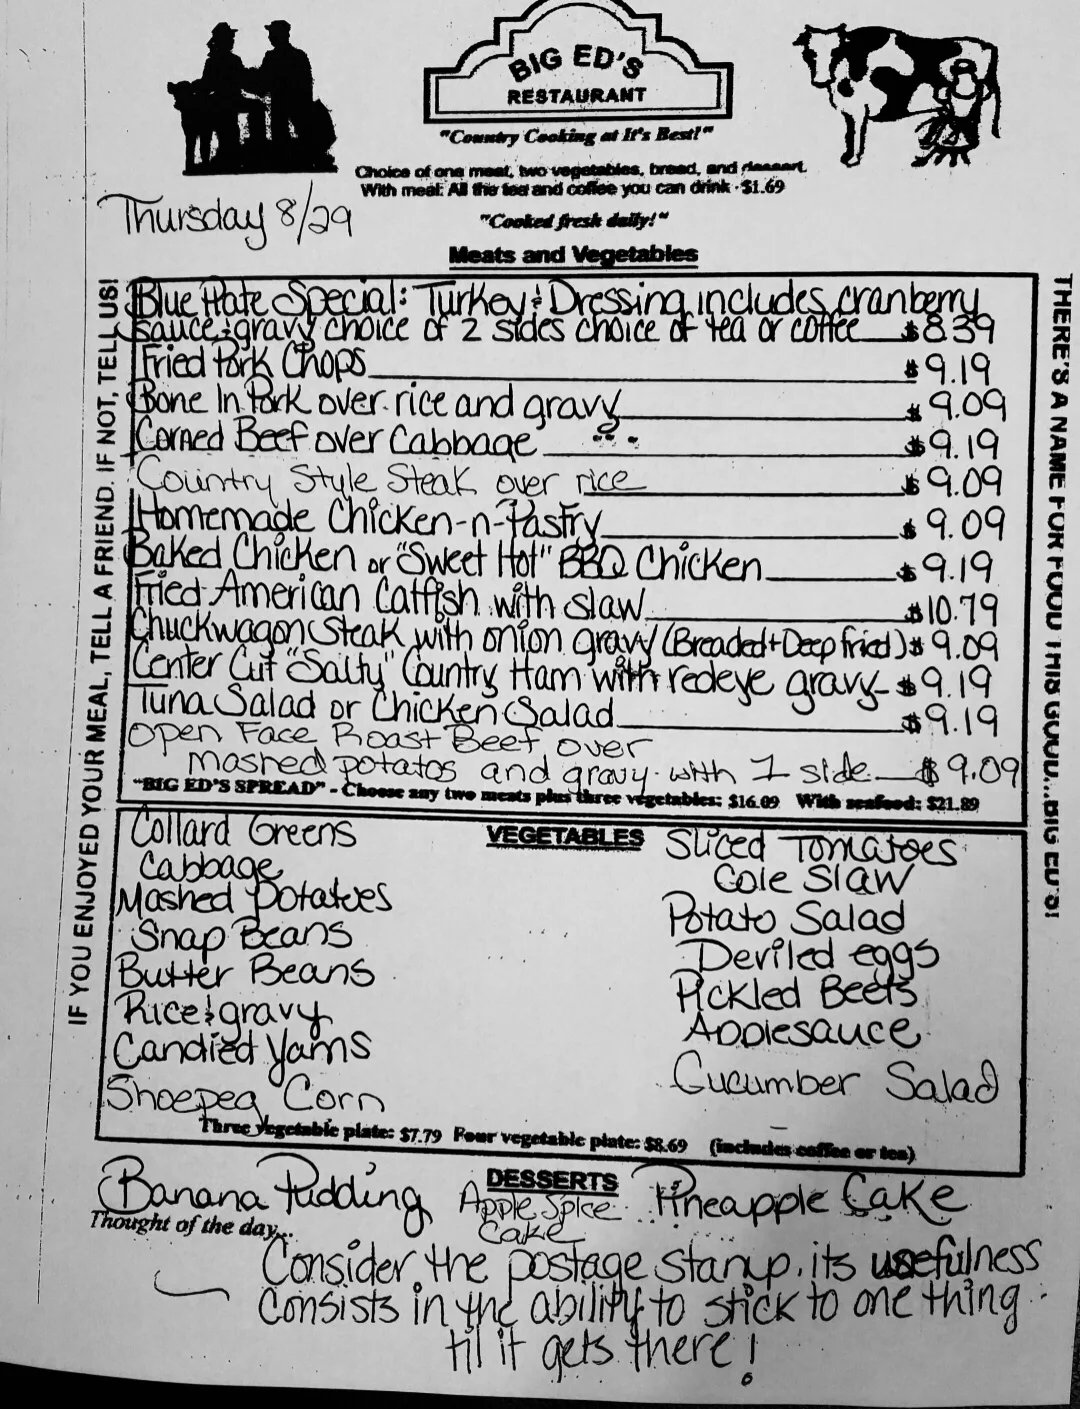 BIG ED'S
RESTAURANT
"Country Cooking at It's Best!"
Choice of one meat, two vegetables, bread, and dessert.
With meal: All the tea and coffee you can drink - $1.69
Thursday 8/29
"Cooked fresh daily!"
Meats and Vegetables
Blue Plate Special: Turkey & Dressing includes cranberry
sauce & gravy choice of 2 sides choice of tea or coffee $8.39
Fried Pork Chops $9.19
Bone In Pork over rice and gravy $9.09
Corned Beef over Cabbage $9.19
Country Style Steak over rice $9.09
Homemade Chicken-n-Pastry $9.09
Baked Chicken or "Sweet Hot" BBQ Chicken $9.19
Fried American Catfish with slaw $10.79
Chuckwagon Steak with onion gravy (Breaded + Deep fried) $9.09
Center Cut "Salty" Country Ham with redeye gravy $9.19
Tuna Salad or Chicken Salad $9.19
Open Face Roast Beef over
mashed potatos and gravy with 1 side $9.09
"BIG ED'S SPREAD" - Choose any two meats plus three vegetables: $16.09 With seafood: $21.89
VEGETABLES
Collard Greens
Cabbage
Mashed Potatoes
Snap Beans
Butter Beans
Rice & gravy
Candied Yams
Shoepeg Corn
Sliced Tomatoes
Cole Slaw
Potato Salad
Deviled eggs
Pickled Beets
Applesauce
Cucumber Salad
Three vegetable plate: $7.79 Four vegetable plate: $8.69 (includes coffee or tea)
DESSERTS
Banana Pudding Apple Spice Pineapple Cake
Cake
Thought of the day...
Consider the postage stamp, its usefulness
consists in the ability to stick to one thing
til it gets there!
IF YOU ENJOYED YOUR MEAL, TELL A FRIEND. IF NOT, TELL US!
THERE'S A NAME FOR FOOD THIS GOOD...BIG ED'S!